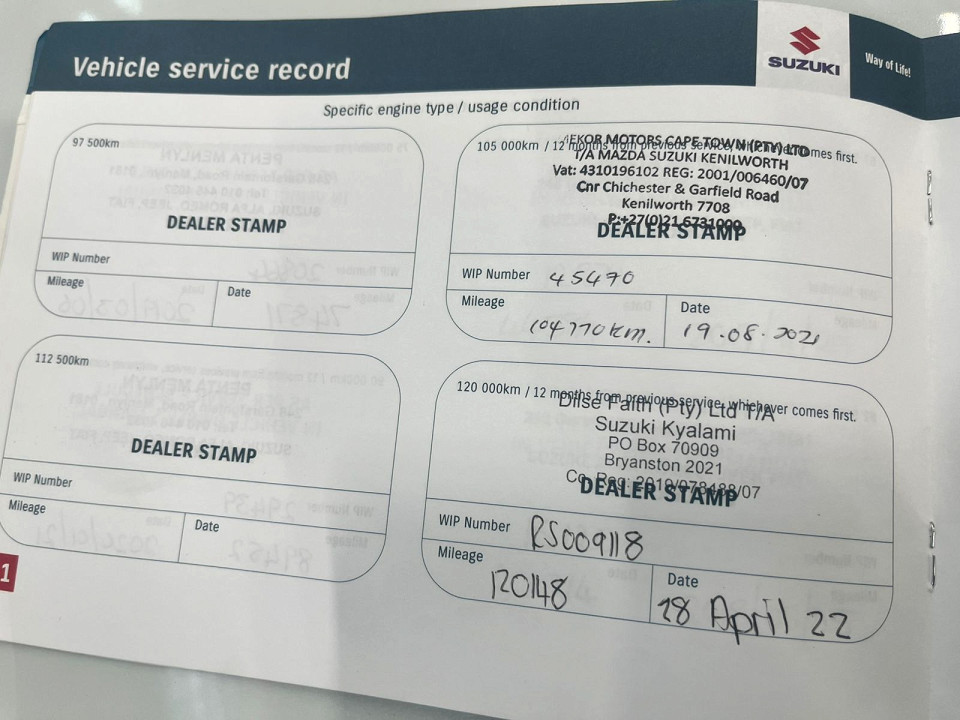 Vehicle service record
SUZUKI
Way of Life!
Specific engine type / usage condition
97 500km
DEALER STAMP
WIP Number
Mileage
Date
105 000km / 12 months from previous service, whichever comes first.
MOTORS CAPE TOWN (PTY) LTD
T/A MAZDA SUZUKI KENILWORTH
Vat: 4310196102 REG: 2001/006460/07
Cnr Chichester & Garfield Road
Kenilworth 7708
P:+27(0)21 6731000
DEALER STAMP
WIP Number 45470
Mileage
Date
104770km.
19.08.2021
112 500km
DEALER STAMP
WIP Number
Mileage
Date
120 000km / 12 months from previous service, whichever comes first.
Faith (Pty) Ltd T/A
Suzuki Kyalami
PO Box 70909
Bryanston 2021
Co. Reg: 2019/078488/07
DEALER STAMP
WIP Number RS009118
Mileage
Date
120148
28 April 22
1